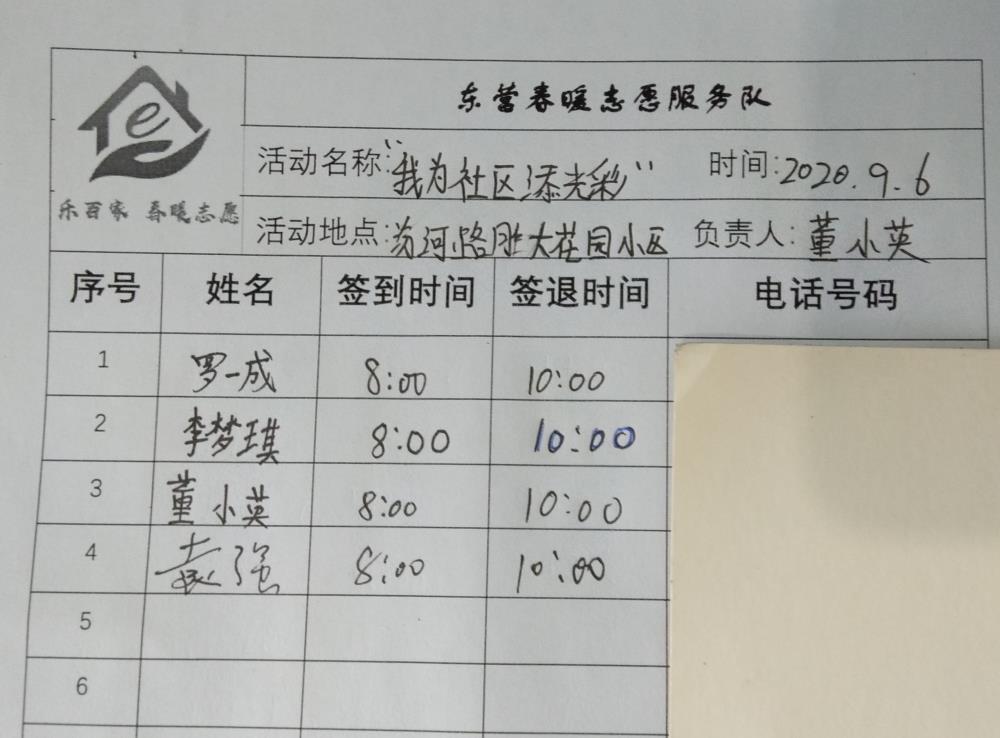 东营春暖志愿服务队
e
乐百家 春暖志愿
活动名称:"我为社区添光彩" 时间:2020.9.6
活动地点:汾河路胜大花园小区 负责人:董小英
序号 姓名 签到时间 签退时间 电话号码
1 罗一成 8:00 10:00
2 李梦琪 8:00 10:00
3 董小英 8:00 10:00
4 袁强 8:00 10:00
5
6